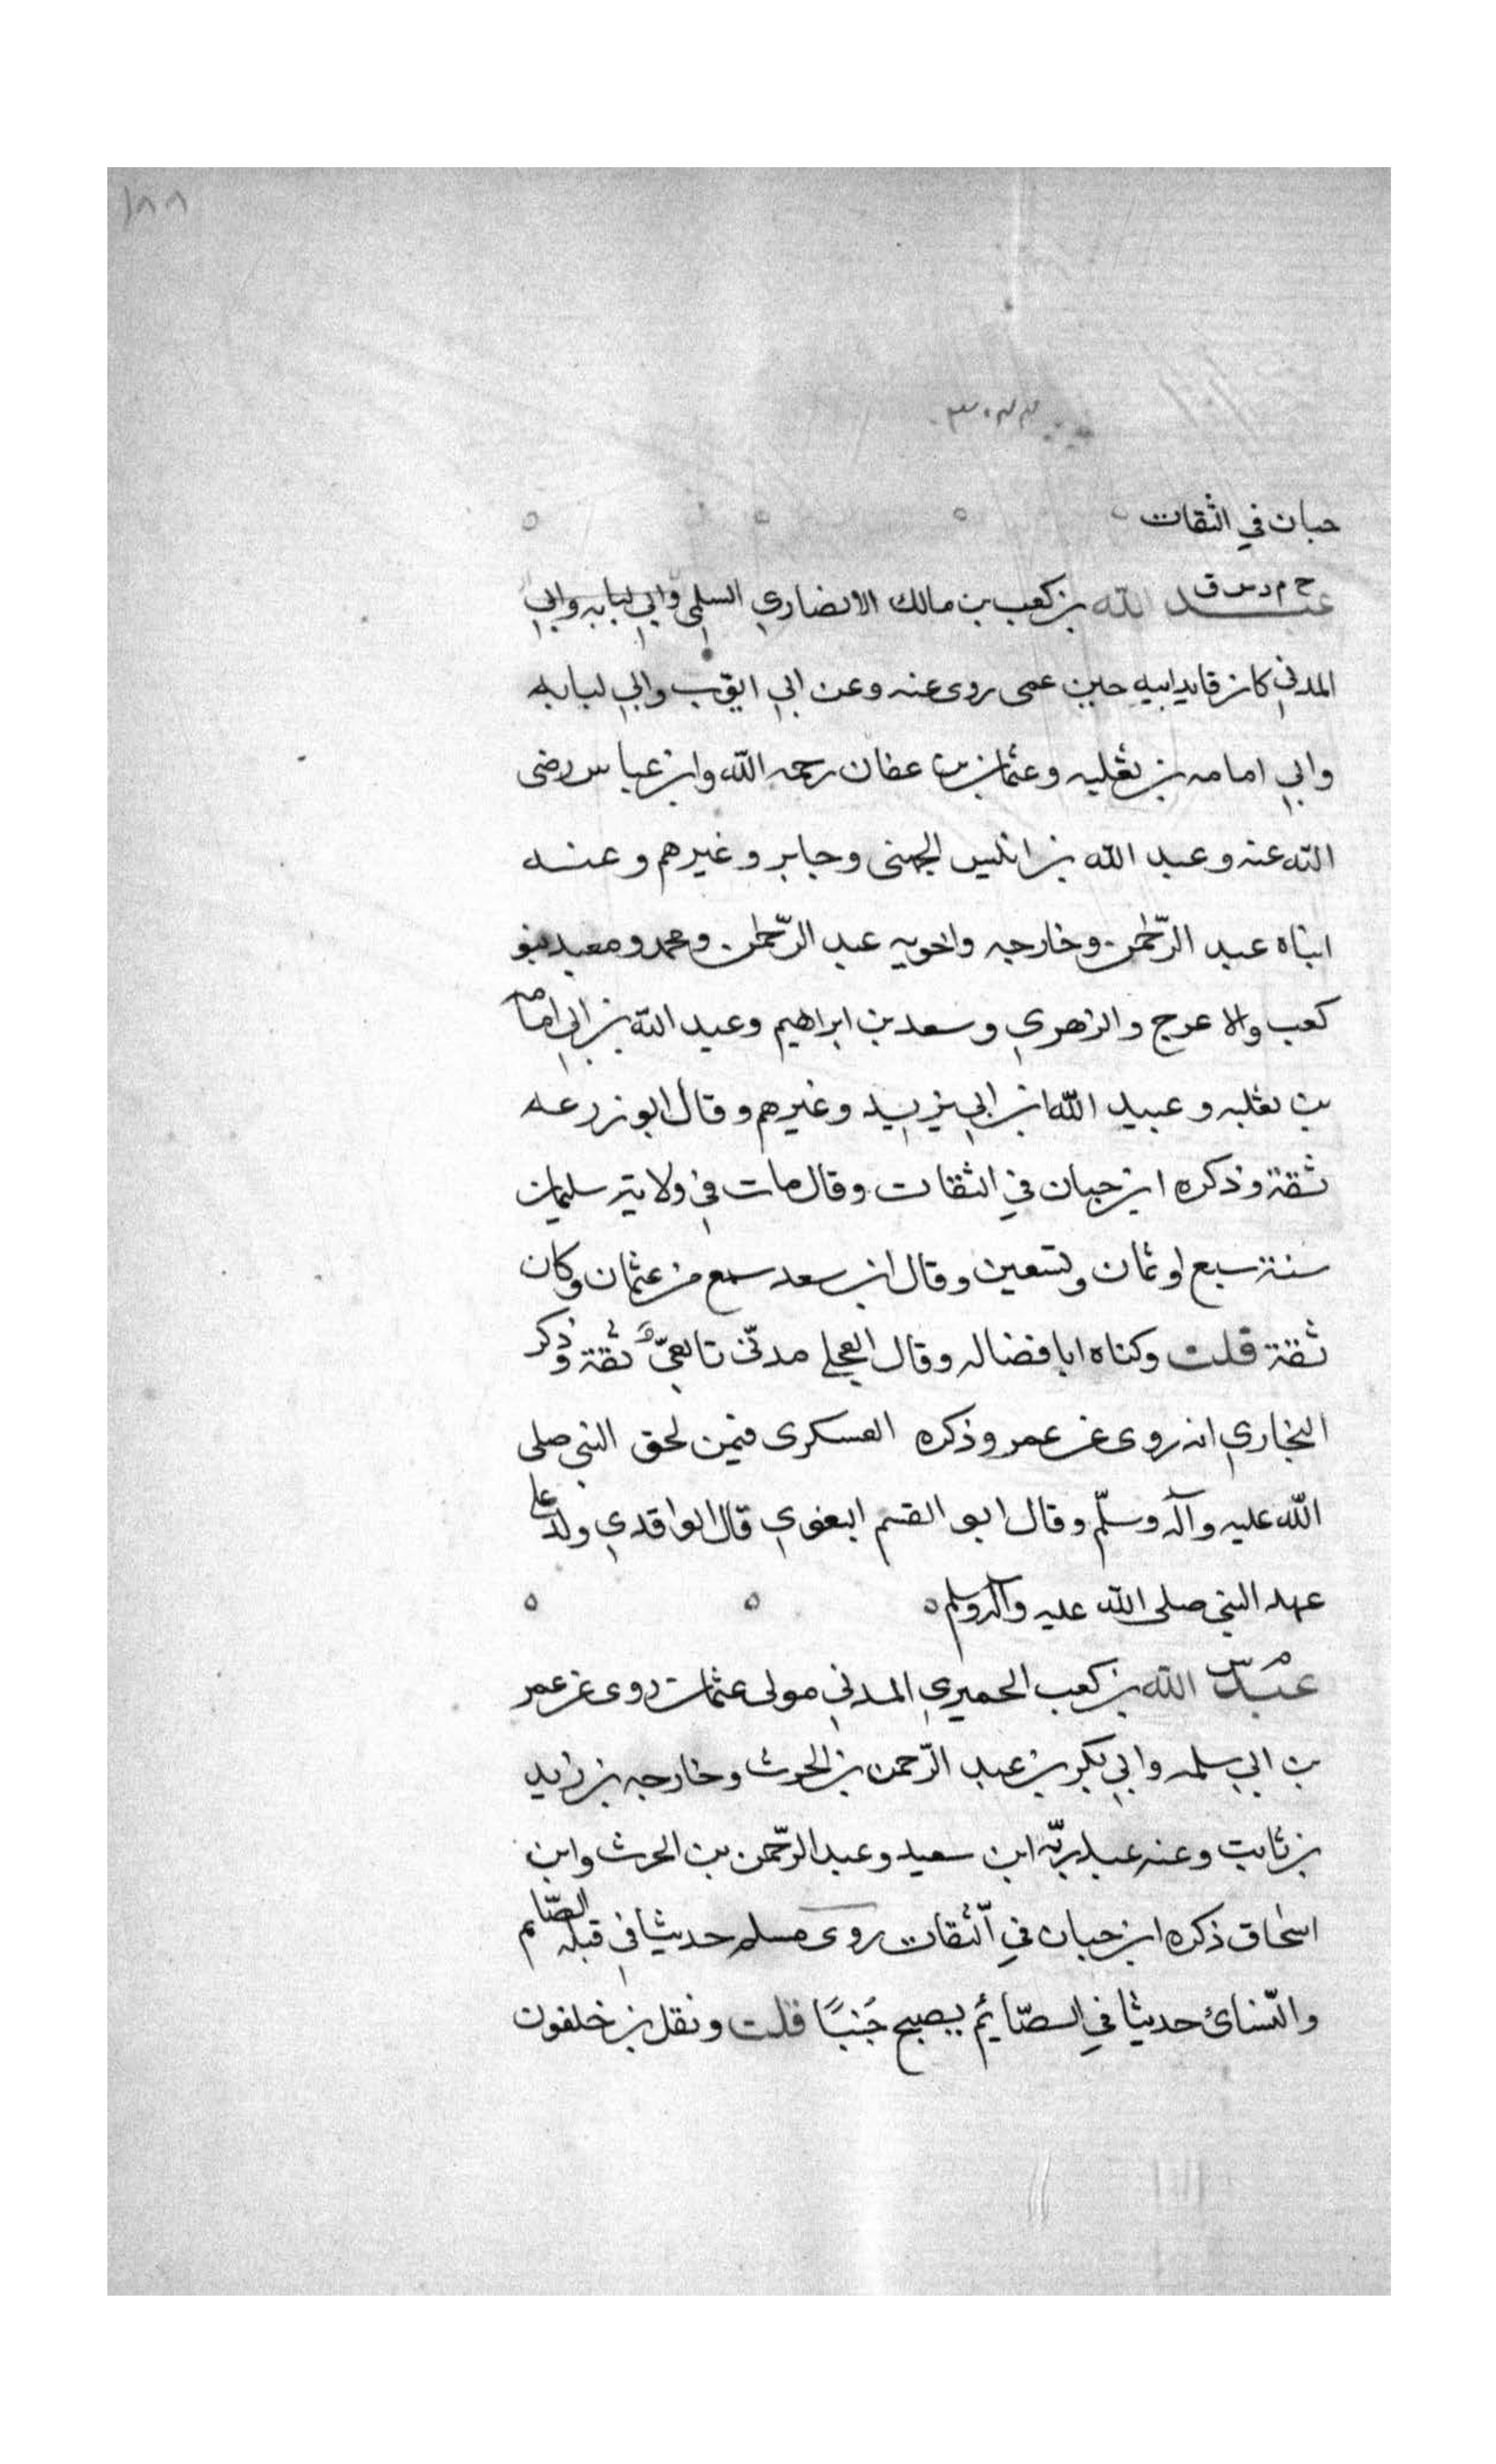 ١٨٨
حبان في الثقات
خ م د س ق
عبد الله بن كعب بن مالك الانصاري السلمي وابي لبابه وابي
المدني كان قايد ابيه حين عمى روى عنه وعن ابي ايوب وابي لبابه
وابي امامه بن ثعلبه وعثمان بن عفان رحمه الله وابن عباس رضى
الله عنه وعبد الله بن انيس الجهنى وجابر وغيرهم وعنه
ابناه عبد الرّحمٰن وخارجه واخويه عبد الرّحمٰن ومحمد ومعبد بنو
كعب والاعرج والزهري وسعد بن ابراهيم وعبد الله بن ابي امامه
بن ثعلبه وعبيد الله ابن ابي يزيد وغيرهم وقال ابو زرعه
ثقة وذكره ابن حبان في الثقات وقال مات في ولاية سليمان
سنة سبع او ثمان وتسعين وقال ابن سعد سمع من عثمان وكان
ثقة قلت وكناه ابا فضاله وقال العجلي مدنّي تابعيّ ثقة وذكر
البخاري انه روى عن عمر وذكره العسكرى فيمن لحق النبي صلى
الله عليه وآله وسلّم وقال ابو القسم البغوي قال الواقدي ولد على
عهد النبي صلى الله عليه وآله وسلم
م س
عبد الله بن كعب الحميري المدني مولى عثمان روى عن عمر
بن ابي سلمه وابي بكر بن عبد الرّحمن بن الحرث وخارجه بن زايد
بن ثابت وعنه عبد ربّه ابن سعيد وعبد الرّحمن بن الحرث وابن
اسحاق ذكره ابن حبان في الثّقات روى مسلم حديثا في قبله الصّايم
والنّسائ حديثا في الصّايم يصبح جَنبًا قلت ونقل بن خلفون